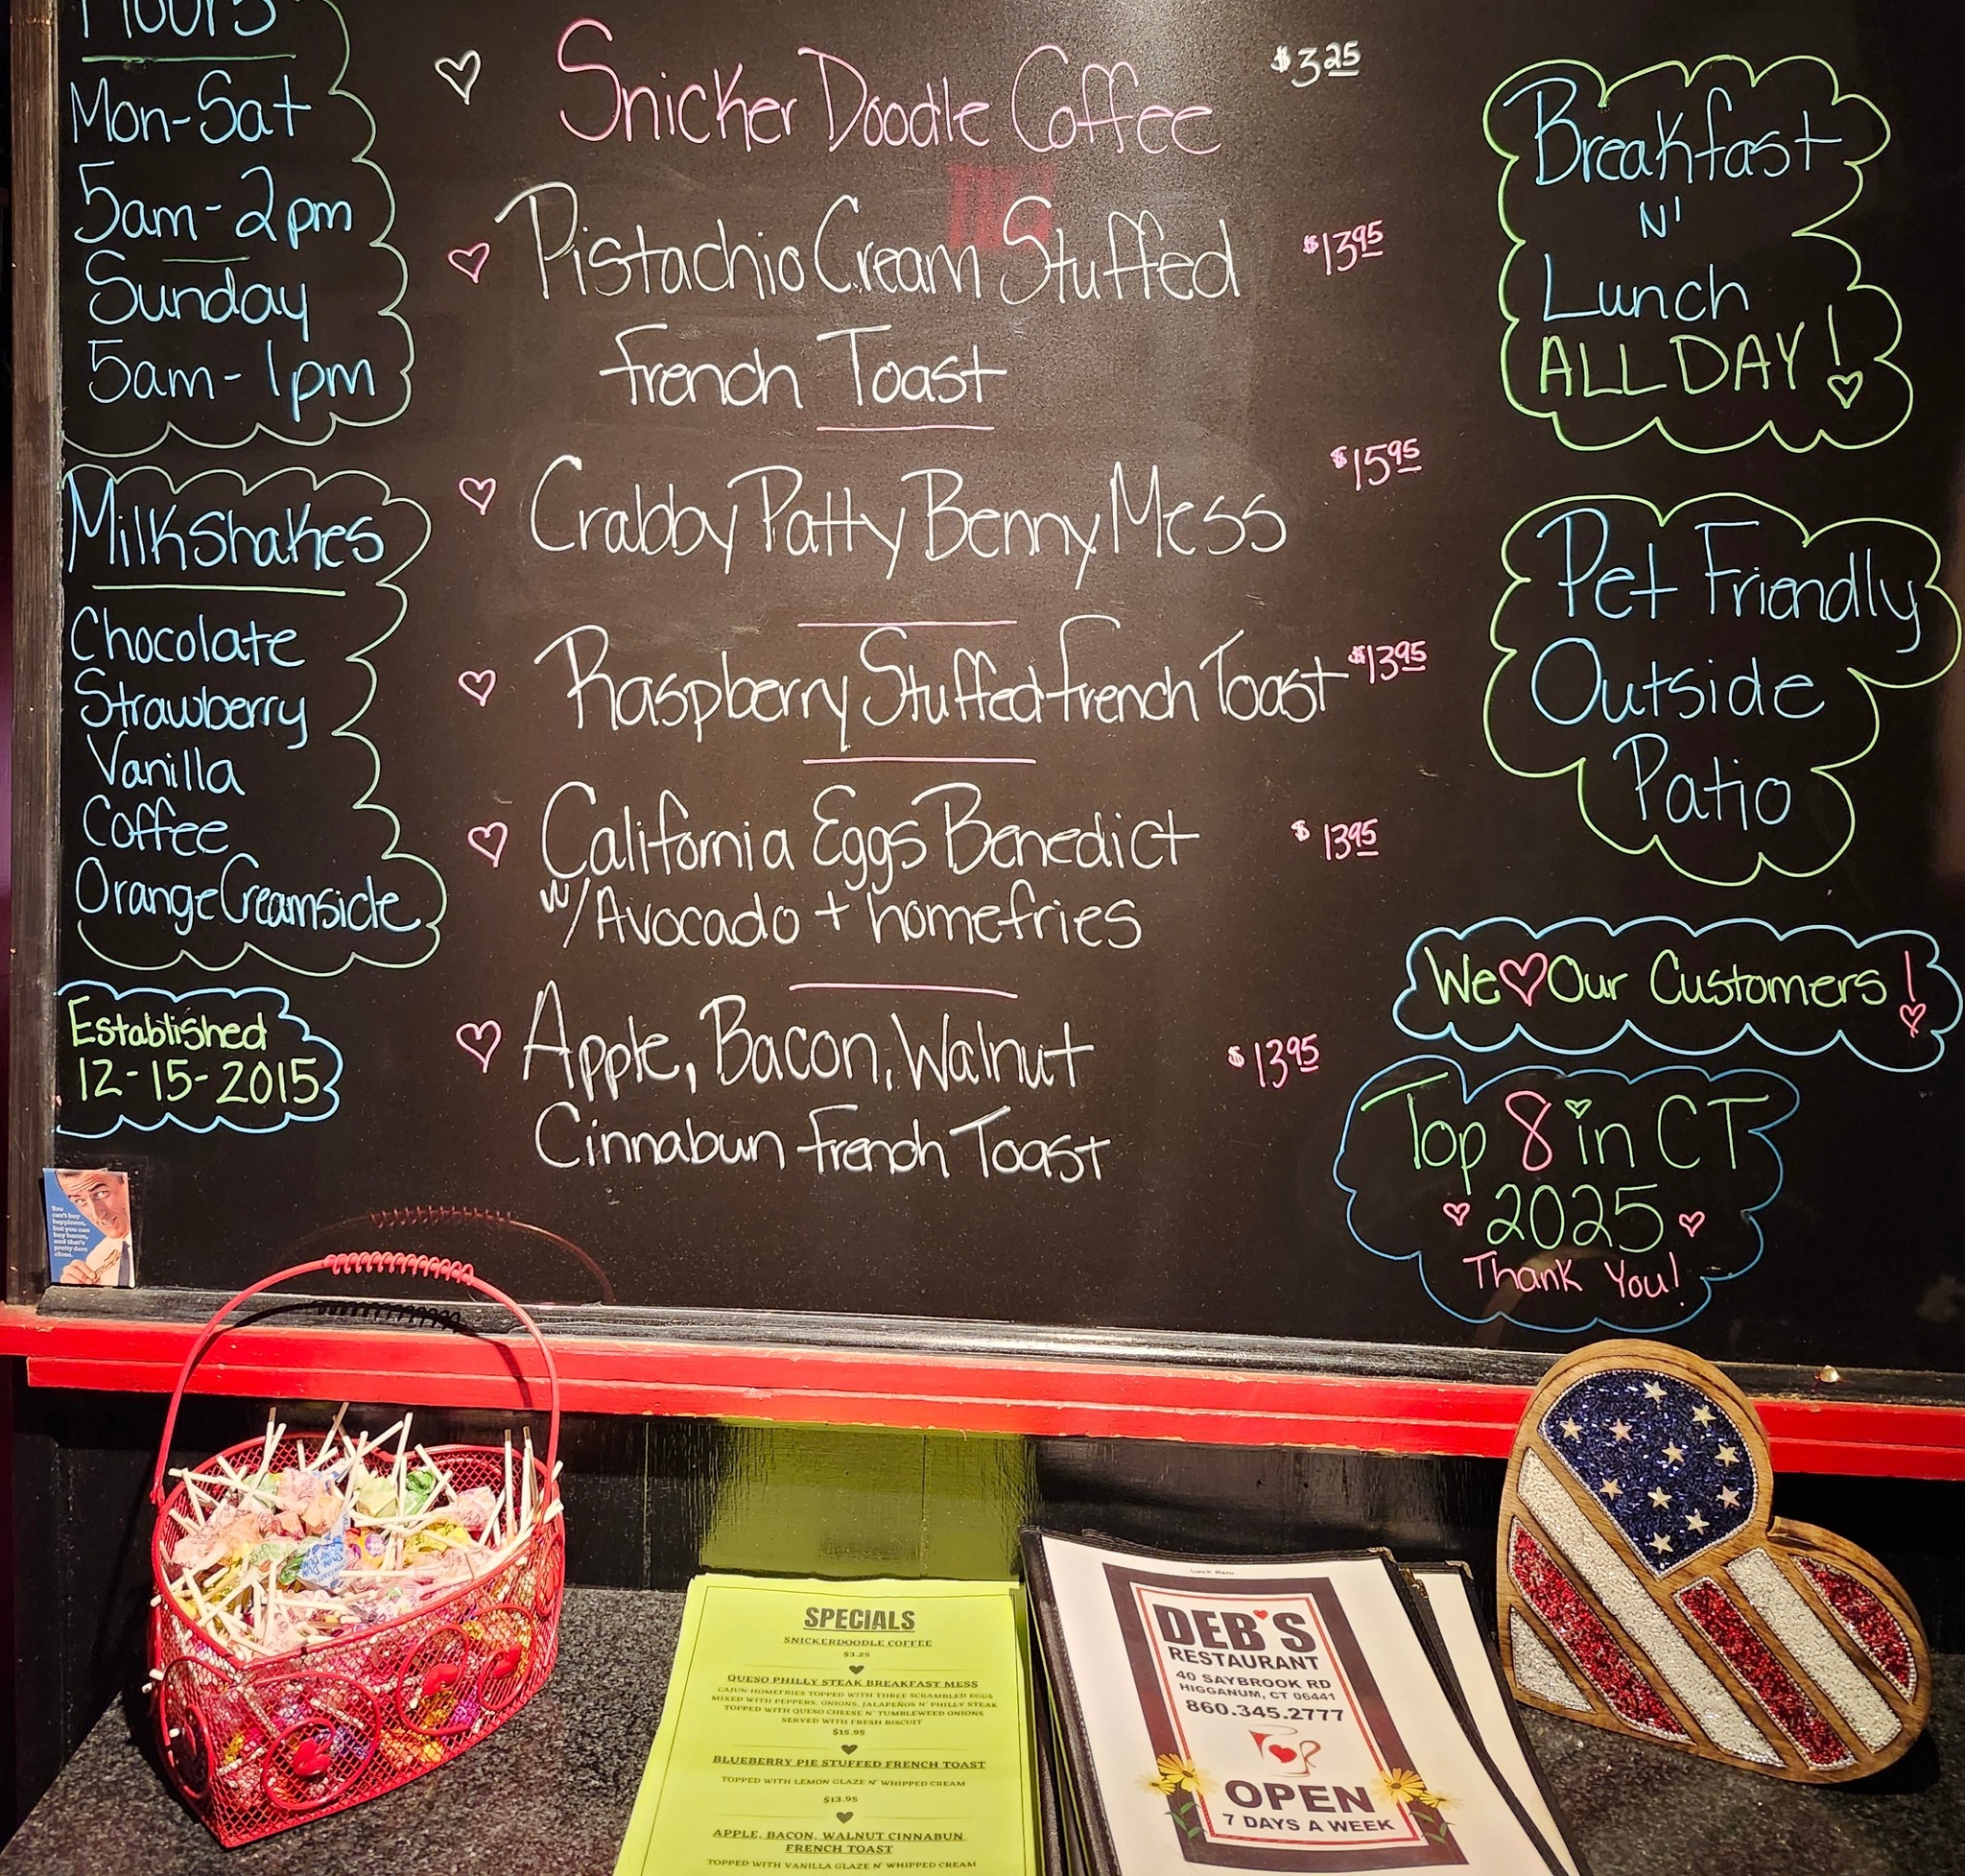 Hours
Mon-Sat
5am-2pm
Sunday
5am-1pm
Milkshakes
Chocolate
Strawberry
Vanilla
Coffee
Orange Creamsicle
Established
12-15-2015
You
can't buy
happiness,
but you can
buy bacon,
and that's
pretty darn
close.
Snicker Doodle Coffee $3.25
Pistachio Cream Stuffed $13.95
French Toast
Crabby Patty Benny Mess $15.95
Raspberry Stuffed French Toast $13.95
California Eggs Benedict $13.95
w/ Avocado + homefries
Apple, Bacon, Walnut $13.95
Cinnabun French Toast
Breakfast
N'
Lunch
ALL DAY!
Pet Friendly
Outside
Patio
We Our Customers!
Top 8 in CT
2025
Thank You!
SPECIALS
SNICKERDOODLE COFFEE
$3.25
QUESO PHILLY STEAK BREAKFAST MESS
CAJUN HOMEFRIES TOPPED WITH THREE SCRAMBLED EGGS
MIXED WITH PEPPERS, ONIONS, JALAPEÑOS N' PHILLY STEAK
TOPPED WITH QUESO CHEESE N' TUMBLEWEED ONIONS
SERVED WITH FRESH BISCUIT
$15.95
BLUEBERRY PIE STUFFED FRENCH TOAST
TOPPED WITH LEMON GLAZE N' WHIPPED CREAM
$13.95
APPLE, BACON, WALNUT CINNABUN
FRENCH TOAST
TOPPED WITH VANILLA GLAZE N' WHIPPED CREAM
Lunch Menu
DEB'S
RESTAURANT
40 SAYBROOK RD
HIGGANUM, CT 06441
860.345.2777
OPEN
7 DAYS A WEEK